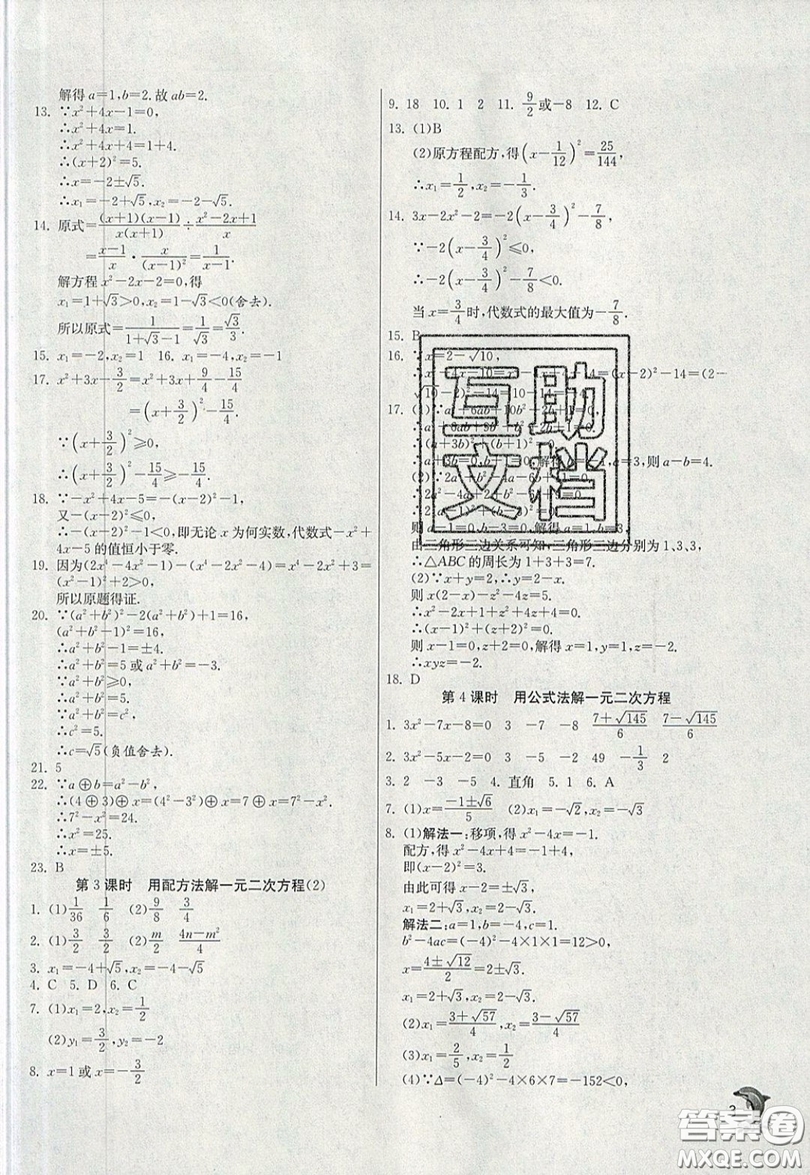 解得a=1,b=2.故ab=2.
13. ∵x²+4x-1=0,
∴x²+4x=1.
∴x²+4x+4=1+4.
∴(x+2)²=5.
∴x=-2±√5.
∴x₁=-2+√5,x₂=-2-√5.
14. 原式=(x+1)(x-1)/x(x+1)÷(x²-2x+1)/x
=(x-1)/x·x/(x-1)²=1/(x-1).
解方程x²-2x-2=0,得
x₁=1+√3>0,x₂=1-√3<0(舍去).
所以原式=1/(1+√3-1)=1/√3=√3/3.
15. x₁=-2,x₂=1 16. x₁=-4,x₂=-1
17. x²+3x-3/2=x²+3x+9/4-15/4
=(x+3/2)²-15/4.
∵(x+3/2)²≥0,
∴(x+3/2)²-15/4≥-15/4.
18. ∵-x²+4x-5=-(x-2)²-1,
又-(x-2)²≤0,
∴-(x-2)²-1<0,即无论x为何实数,代数式-x²+
4x-5的值恒小于零.
19. 因为(2x⁴-4x²-1)-(x⁴-2x²-4)=x⁴-2x²+3=
(x²-1)²+2>0,
所以原题得证.
20. ∵(a²+b²)²-2(a²+b²)+1=16,
(a²+b²-1)²=16,
∴a²+b²-1=±4.
∴a²+b²=5或a²+b²=-3.
∵a²+b²≥0,
∴a²+b²=5.
∵a²+b²=c²,
∴c²=5.
∴c=√5(负值舍去).
21. 5
22. ∵a⊕b=a²-b²,
∴(4⊕3)⊕x=(4²-3²)⊕x=7⊕x=7²-x².
∴7²-x²=24.
∴x²=25.
∴x=±5.
23. B
第3课时 用配方法解一元二次方程(2)
1. (1)1/36 1/6 (2)9/8 3/4
2. (1)3/2 3/2 (2)m/2 (4n-m²)/4
3. x₁=-4+√5,x₂=-4-√5
4. C 5. D 6. C
7. (1)x₁=2,x₂=1/2
(2)y₁=3/2,y₂=-2
8. x=1或x=-3/2
9. 18 10. 1 2 11. 9/2或-8 12. C
13. (1)B
(2)原方程配方,得(x-1/12)²=25/144,
∴x₁=1/2,x₂=-1/3.
14. 3x-2x²-2=-2(x-3/4)²-7/8,
∵-2(x-3/4)²≤0,
∴-2(x-3/4)²-7/8<0.
当x=3/4时,代数式的最大值为-7/8.
15. B
16. ∵x=2-√10,∴x²-4x-10=(x-2)²-14=(2-
√10-2)²-14
17. (1)∵a²+6ab+10b²+2b+1=0,
∴a²+6ab+9b²+b²+2b+1=0.
∴(a+3b)²+(b+1)²=0.
b+1=0,解得 a=3,则a-b=4.
则a-1=0,b-3=0,解得a=1,b=3,
由三角形三边关系可知,三角形三边分别为1,3,3,
∴△ABC的周长为1+3+3=7.
(2)∵x+y=2,∴y=2-x.
则x(2-x)-z²-4z=5.
∴x²-2x+1+z²+4z+4=0.
∴(x-1)²+(z+2)²=0.
则x-1=0,z+2=0,解得x=1,y=1,z=-2.
∴xyz=-2.
18. D
第4课时 用公式法解一元二次方程
1. 3x²-7x-8=0 3 -7 -8 (7+√145)/6 (7-√145)/6
2. 3x²-5x-2=0 3 -5 -2 49 -1/3 2
3. 2 -3 -5 4. 直角 5. 1 6. A
7. (1)x=(-1±√6)/5 (2)x₁=-√2,x₂=-√3
8. (1)解法一:移项,得x²-4x=-1.
配方,得x²-4x+4=-1+4,
即(x-2)²=3.
由此可得x-2=±√3,
x₁=2+√3,x₂=2-√3.
解法二:a=1,b=-4,c=1.
b²-4ac=(-4)²-4×1×1=12>0,
x=(4±√12)/2=2±√3,
x₁=2+√3,x₂=2-√3.
(2)x₁=(3+√57)/4,x₂=(3-√57)/4
(3)x₁=2/5,x₂=1/2
(4)∵Δ=(-4)²-4×6×7=-152<0,
3
互助
文档
答案卷
MXQE.COM